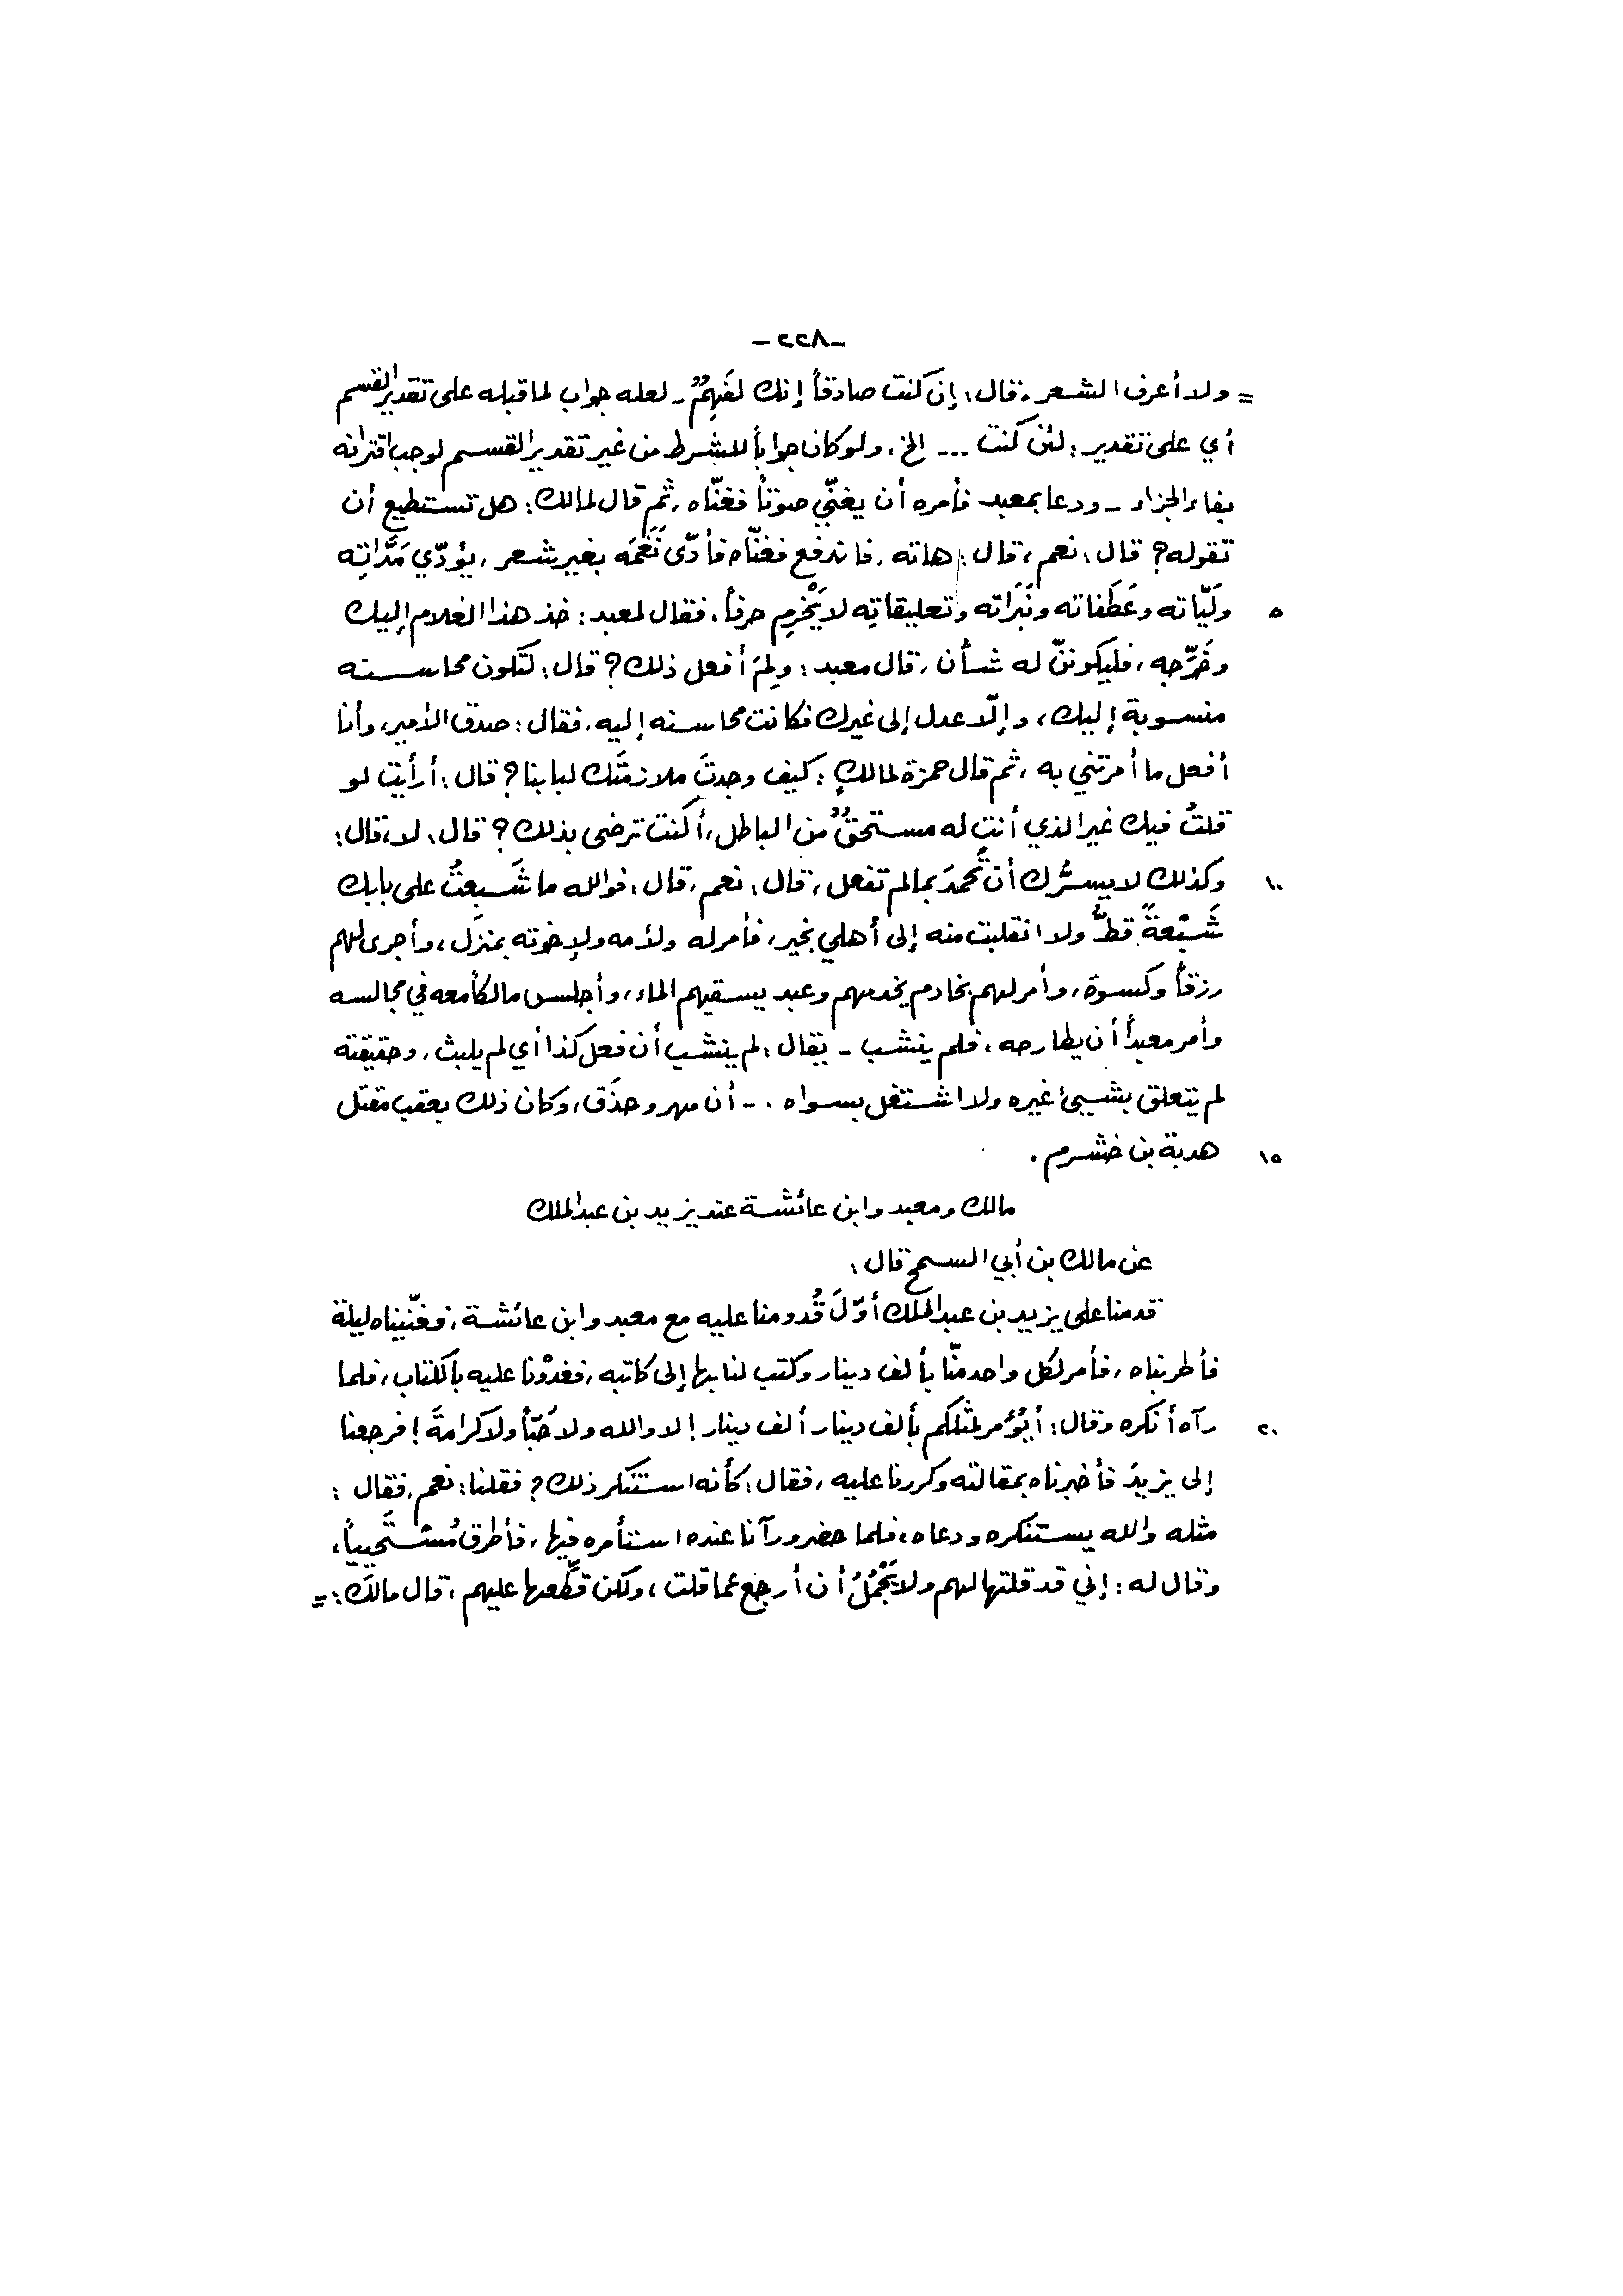 -٢٢٨-
= ولا أعرف الشعر، قال: إن كنت صادقاً إنك لفَهِمٌ - لعله جواب لما قبله على تقدير القسم
أي على تقدير: لئن كنت ... الخ، ولو كان جواباً للشرط من غير تقدير القسم لوجب اقترانه
بفاء الجزاء - ودعا بمعبد فأمره أن يغنّي صوتاً فغنّاه، ثم قال لمالك: هل تستطيع أن
تقوله؟ قال: نعم، قال: هاته، فاندفع فغنّاه فأدّى نَغَمَه بغير شعر، يؤدّي مَدَّاتِه
٥ ولَيّاته وعَطَفاته ونَبَراته وتعليقاتِه لا يَخْرِم حرفاً، فقال لمعبد: خذ هذا الغلام إليك
وخَرّجه، فليكوننّ له شأن، قال معبد: ولِمَ أفعل ذلك؟ قال: لتكون محاسنه
منسوبة إليك، وإلّا عدل إلى غيرك فكانت محاسنه إليه، فقال: صدق الأمير، وأنا
أفعل ما أمرتني به، ثم قال حمزة لمالكٍ: كيف وجدتَ ملازمتَك لبابنا؟ قال: أرأيت لو
قلتُ فيك غير الذي أنت له مستحقٌ من الباطل، أكنت ترضى بذلك؟ قال: لا، قال:
١٠ وكذلك لا يسرُّك أن تُحمدَ بما لم تفعل، قال: نعم، قال: فوالله ما شَبِعتُ على بابك
شَبْعَةً قطُّ ولا انقلبت منه إلى أهلي بخير، فأمر له ولأمه ولإخوته بمنزل، وأجرى لهم
رزقاً وكسوة، وأمر لهم بخادم يخدمهم وعبد يسقيهم الماء، وأجلس مالكاً معه في مجالسه
وأمر معبداً أن يطارحه، فلم ينشب - يقال: لم ينشب أن فعل كذا أي لم يلبث، وحقيقته
لم يتعلق بشيئ غيره ولا اشتغل بسواه . - أن مهر وحذَق، وكان ذلك بعقب مقتل
١٥ هدبة بن خشرم .
مالك ومعبد وابن عائشة عند يزيد بن عبد الملك
عن مالك بن أبي السمح قال:
قدمنا على يزيد بن عبد الملك أوّلَ قُدومنا عليه مع معبد وابن عائشة، فغنّيناه ليلة
فأطربناه، فأمر لكل واحد منّا بألف دينار وكتب لنا بها إلى كاتبه، فغدوْنا عليه بالكتاب، فلما
٢٠ رآه أنكره وقال: أيُؤمر لمثلكم بألف دينار ألف دينار! لا والله ولا حُبّاً ولا كرامةَ! فرجعنا
إلى يزيدَ فأخبرناه بمقالته وكررنا عليه، فقال: كأنه استنكر ذلك؟ فقلنا: نعم، فقال:
مثله والله يستنكره ودعاه، فلما حضر ورآنا عنده استأمره فيها، فأطرق مُسْتَحْيياً،
وقال له: إني قد قلتها لهم ولا يَجْمُلُ أن أرجع عما قلت، ولكن قَطِّعها عليهم، قال مالك: =